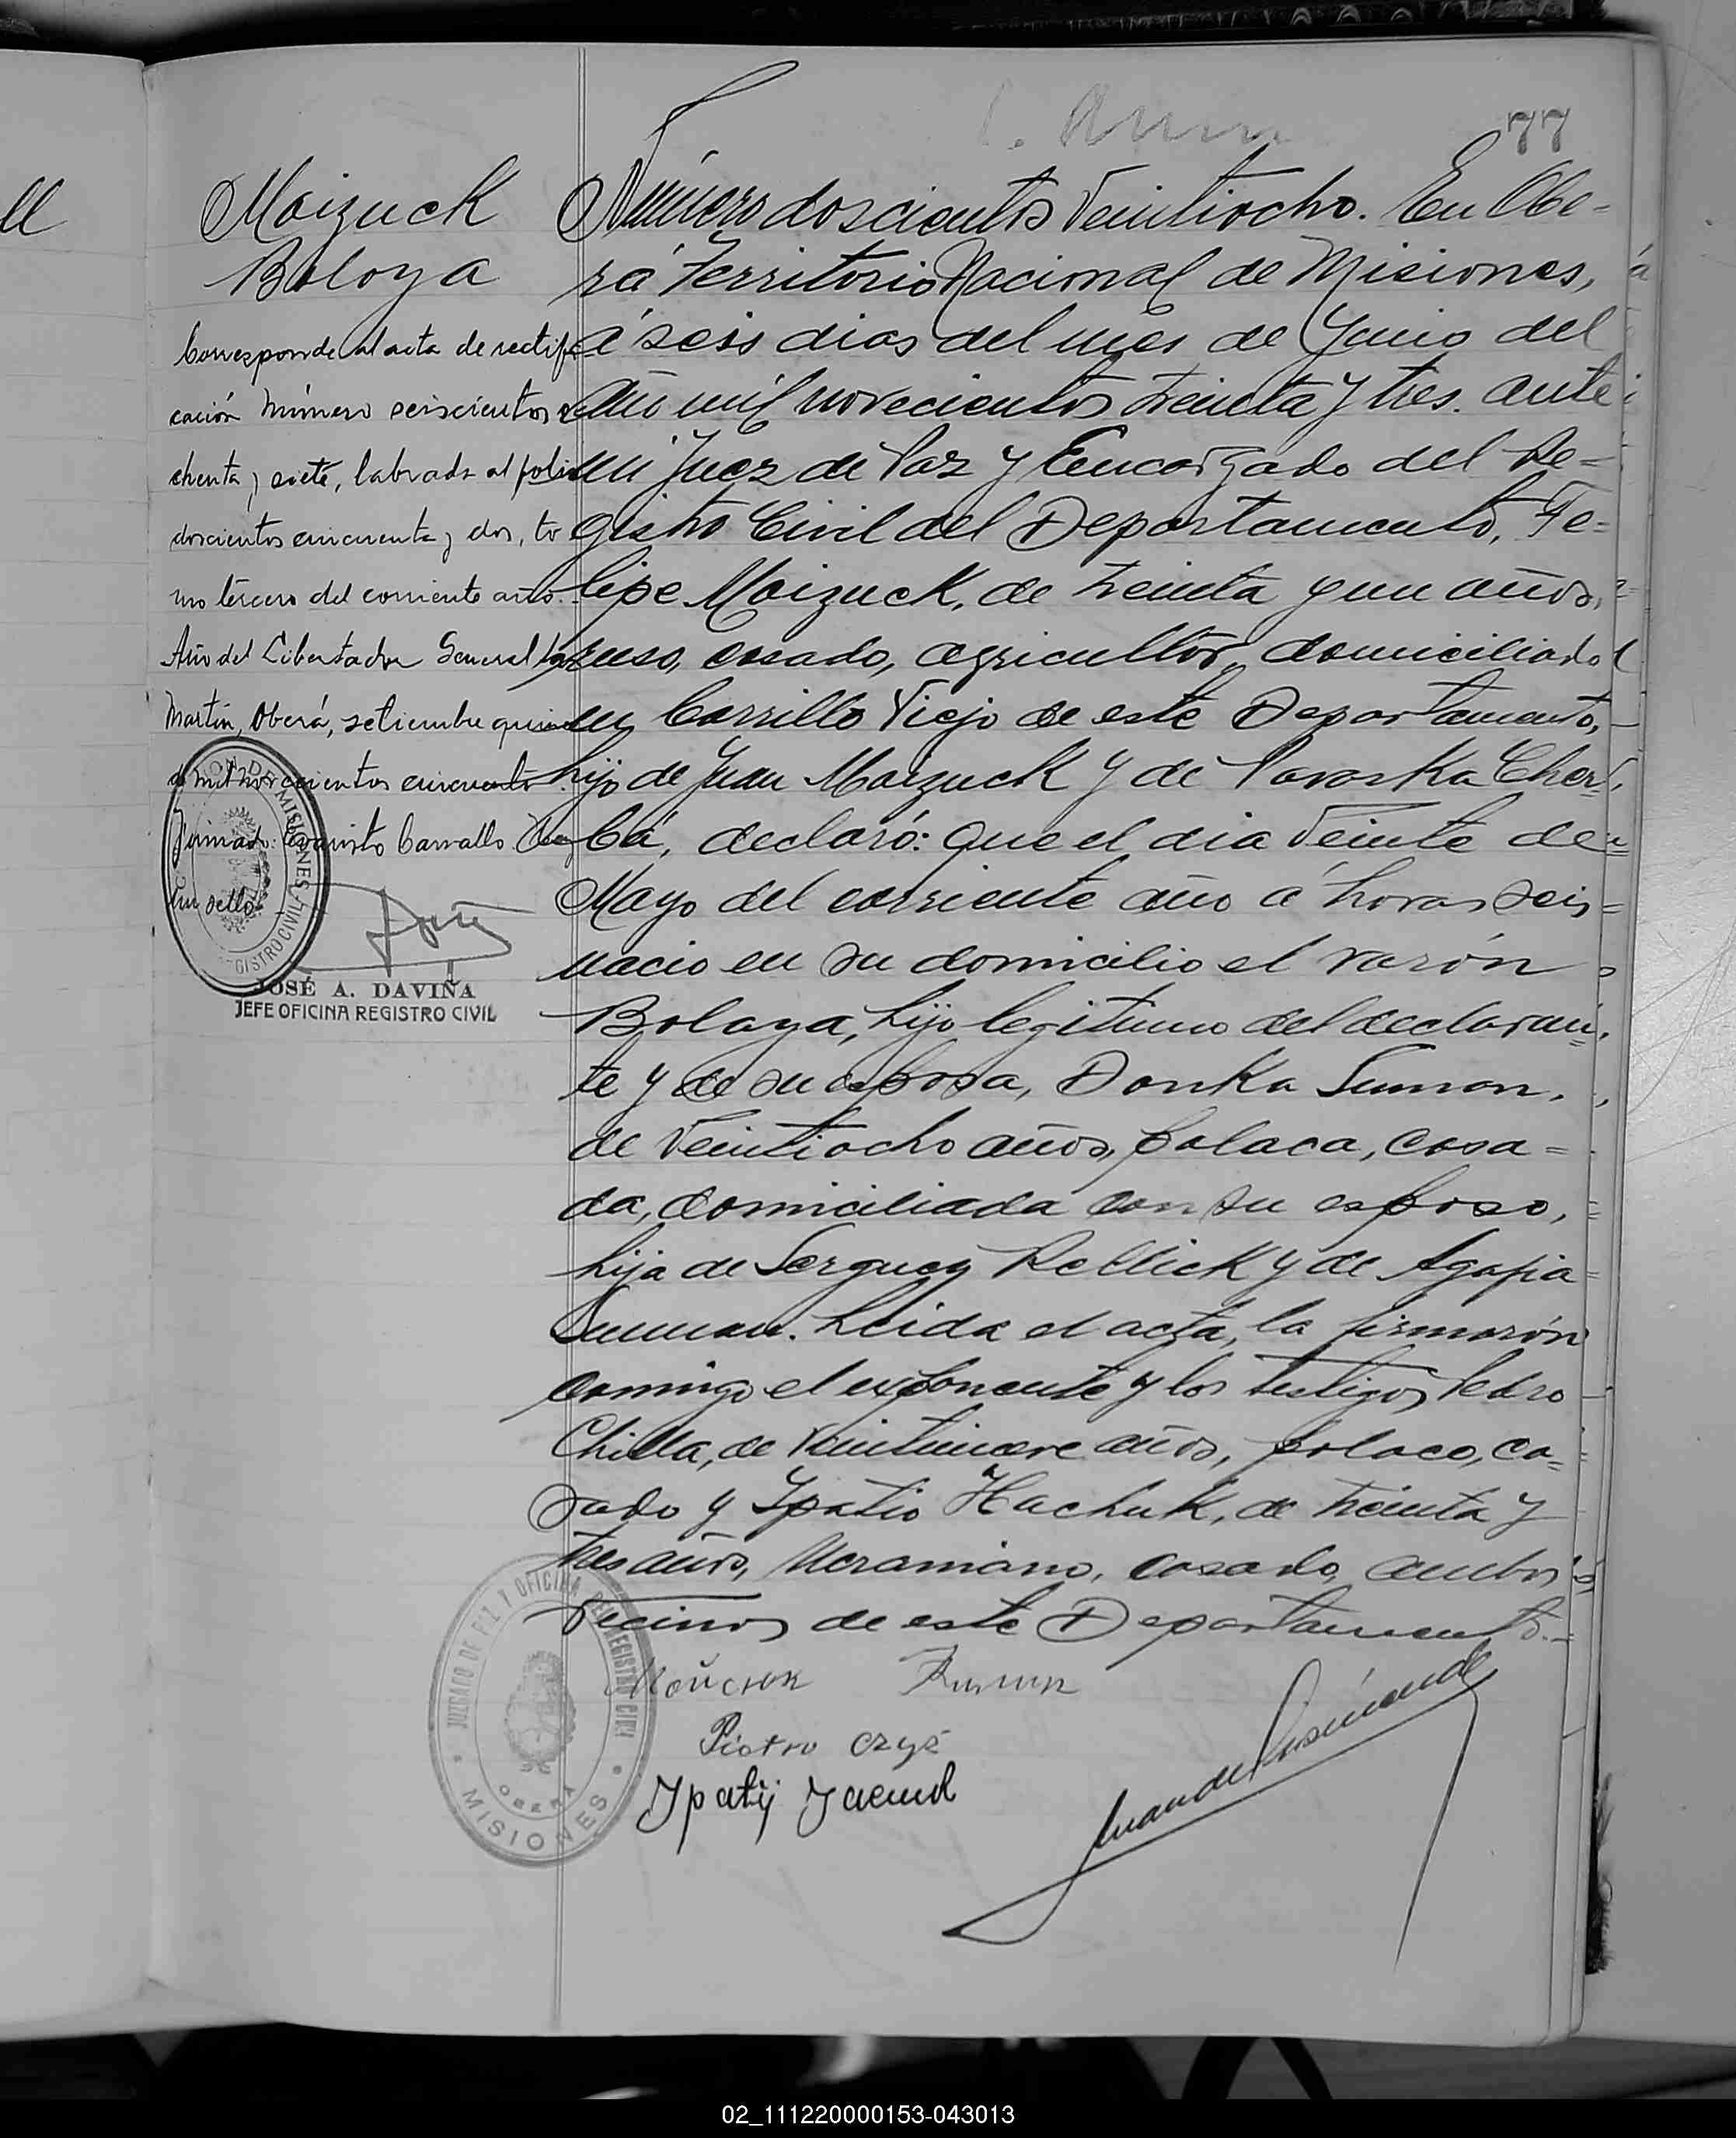 77
Moizuck
Boloya
Corresponde al acta de rectifi
cación número seiscientos o
chenta y siete, labrada al folio
doscientos cincuenta y dos, to
mo tercero del corriente año.-
Año del Libertador General San
Martín, Oberá, setiembre quince
de mil novecientos cincuenta.
Firmado: Evaristo Carvallo. Hay
un sello.-
JOSÉ A. DAVIÑA
JEFE OFICINA REGISTRO CIVIL
Número doscientos veintiocho. En Obe-
rá Territorio Nacional de Misiones,
á seis dias del mes de Junio del
año mil novecientos treinta y tres. ante
mi Juez de Paz y Encargado del Re-
gistro Civil del Departamento, Fe-
lipe Moizuck, de treinta y un años,
ruso, casado, agricultor, domiciliado
en Cerrillo Viejo de este Departamento,
hijo de Juan Moizuck y de Paraska Cher-
bá, declaró: que el dia veinte de
Mayo del corriente año á horas seis
nacio en su domicilio el varón
Bolaya, hijo legitimo del declaran-
te y de su esposa, Donka Suman,
de veintiocho años, polaca, casa-
da, domiciliada con su esposo,
hija de Serguey Rellick y de Agapia
Suman. Leida el acta, la firmarón
conmigo el exponente y los testigos Pedro
Chilla, de veintinueve años, polaco, ca-
sado y Ipatio Hachuk, de treinta y
tres años, Ucraniano, casado, ambos
vecinos de este Departamento.-
JUZGADO DE PAZ Y OFICINA DEL REGISTRO CIVIL
OBERÁ
MISIONES
Piotro
Ipatij
02_111220000153-043013